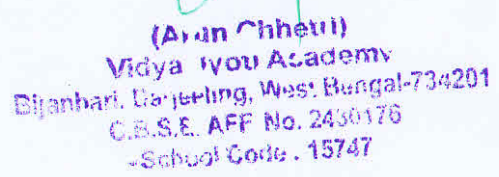 (Arun Chhetri)
Vidya Jyoti Academy
Bijanbari, Darjeeling, West Bengal-734201
C.B.S.E. AFF No. 2430176
School Code . 15747